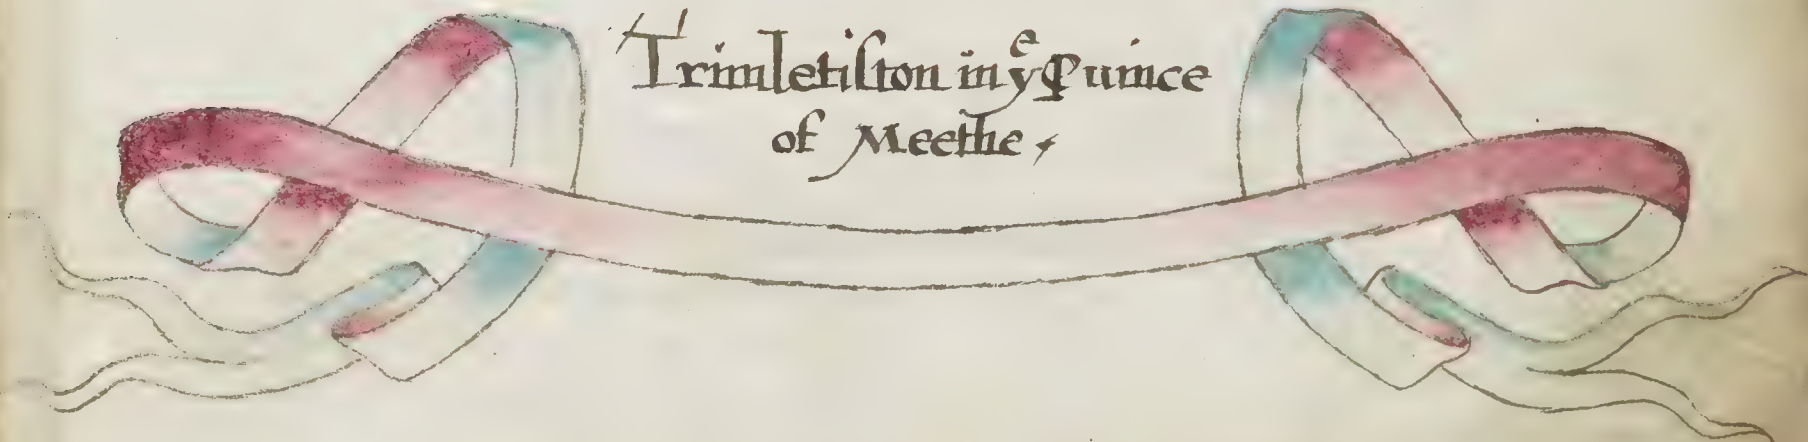 Trimletiston in yᵉ Ꝓuince
of Meethe